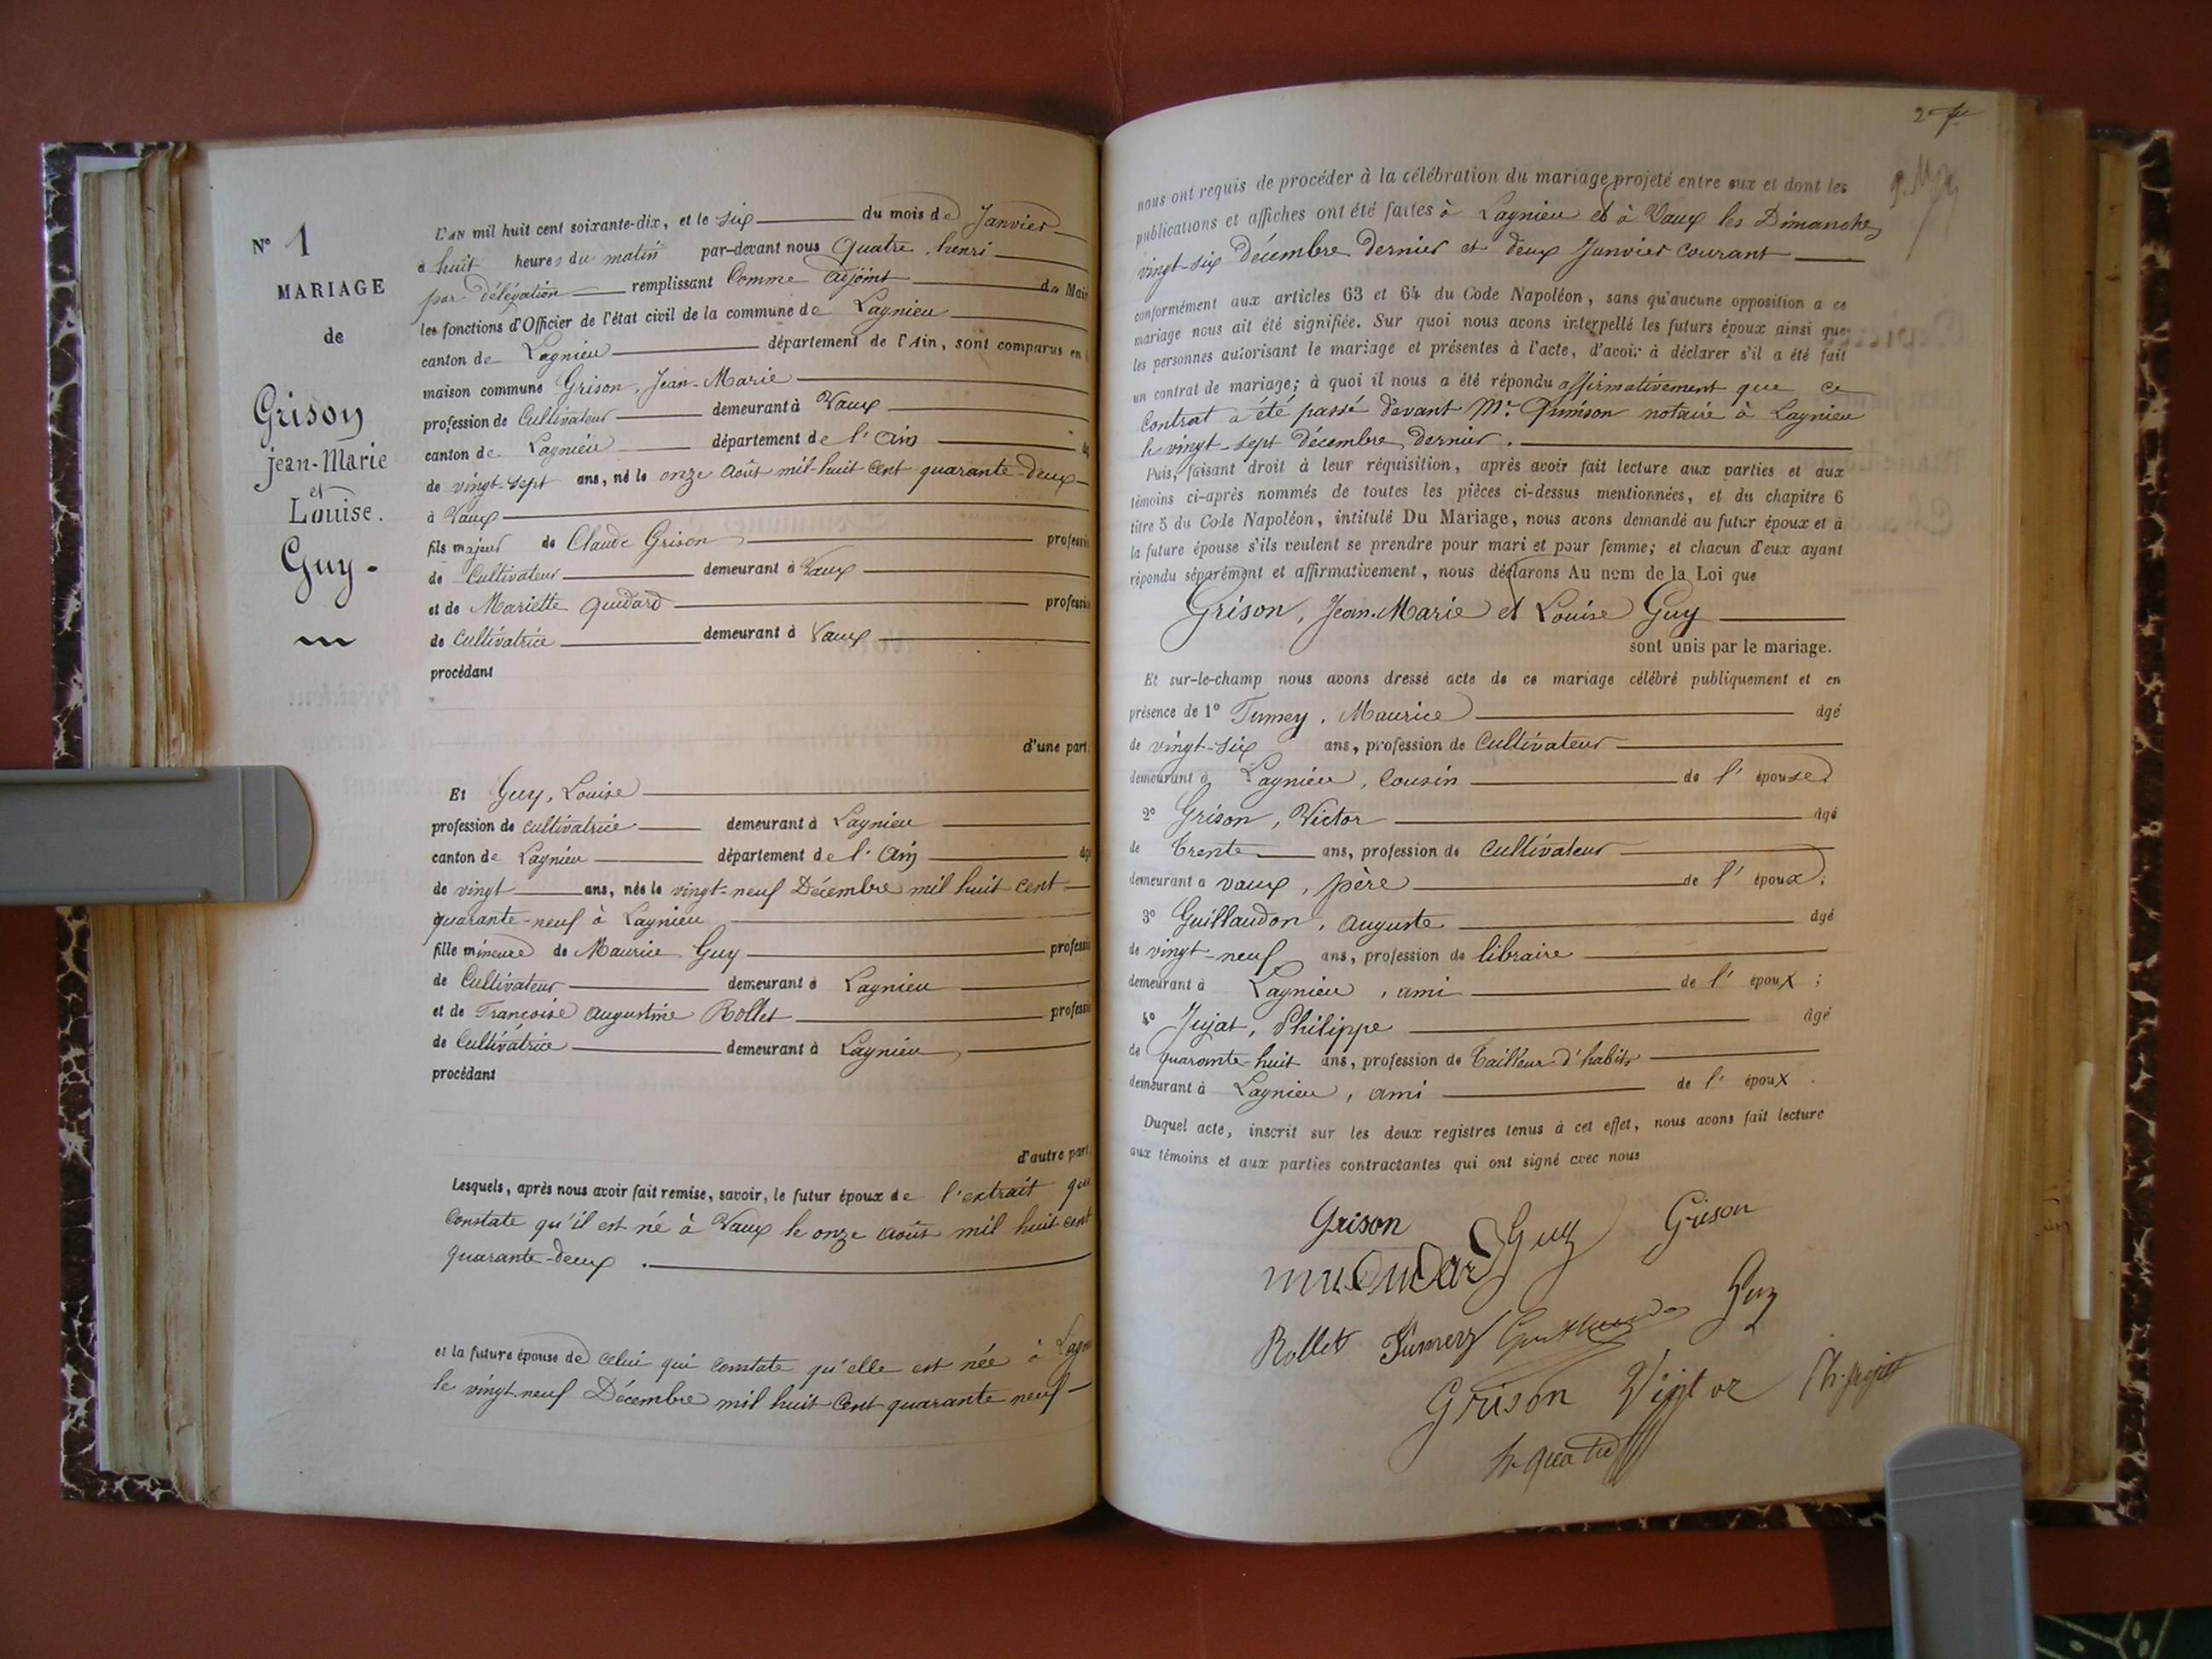 N° 1
MARIAGE
de
Grison
Jean-Marie
et
Louise.
Guy -
L'AN mil huit cent soixante-dix, et le six du mois de Janvier
à huit heures du matin par-devant nous Quatre, henri
par délégation remplissant Comme adjoint du Mai
les fonctions d'Officier de l'état civil de la commune de Lagnieu
canton de Lagnieu département de l'Ain, sont comparus en
maison commune Grison, Jean-Marie
profession de Cultivateur demeurant à Vaux
canton de Lagnieu département de l'Ain
de vingt-sept ans, né le onze Août mil huit cent quarante-deux
à Vaux
fils majeur de Claude Grison professi
de Cultivateur demeurant à Vaux
et de Mariette Quidard professi
de Cultivatrice demeurant à Vaux
procédant
d'une part.
Et Guy, Louise
profession de cultivatrice demeurant à Lagnieu
canton de Lagnieu département de l'Ain âg
de vingt ans, née le vingt-neuf Décembre mil huit cent
quarante-neuf à Lagnieu
fille mineure de Maurice Guy professi
de Cultivateur demeurant à Lagnieu
et de Françoise Augustine Rollet professi
de Cultivatrice demeurant à Lagnieu
procédant
d'autre part.
Lesquels, après nous avoir fait remise, savoir, le futur époux de l'extrait qui
Constate qu'il est né à Vaux le onze août mil huit cent
quarante-deux .
et la future épouse de celui qui constate qu'elle est née à Lagn
le vingt-neuf Décembre mil huit Cent quarante neuf
nous ont requis de procéder à la célébration du mariage projeté entre eux et dont les
publications et affiches ont été faites à Lagnieu et à Vaux les Dimanche
vingt-six Décembre dernier et deux Janvier courant
conformément aux articles 63 et 64 du Code Napoléon, sans qu'aucune opposition à ce
mariage nous ait été signifiée. Sur quoi nous avons interpellé les futurs époux ainsi que
les personnes autorisant le mariage et présentes à l'acte, d'avoir à déclarer s'il a été fait
un contrat de mariage; à quoi il nous a été répondu affirmativement que ce
Contrat a été passé devant Me notaire à Lagnieu
le vingt-sept décembre dernier.
Puis, faisant droit à leur réquisition, après avoir fait lecture aux parties et aux
témoins ci-après nommés de toutes les pièces ci-dessus mentionnées, et du chapitre 6
titre 5 du Code Napoléon, intitulé Du Mariage, nous avons demandé au futur époux et à
la future épouse s'ils veulent se prendre pour mari et pour femme; et chacun d'eux ayant
répondu séparément et affirmativement, nous déclarons Au nom de la Loi que
Grison, Jean-Marie et Louise Guy
sont unis par le mariage.
Et sur-le-champ nous avons dressé acte de ce mariage célébré publiquement et en
présence de 1° Tumey, Maurice âgé
de vingt-six ans, profession de Cultivateur
demeurant à Lagnieu, Cousin de l'épouse
2° Grison, Victor âgé
de trente ans, profession de Cultivateur
demeurant à vaux, père de l'époux;
3° Guillaudon, Auguste âgé
de vingt-neuf ans, profession de libraire
demeurant à Lagnieu, ami de l'époux;
4° Jujat, Philippe âgé
de quarante-huit ans, profession de Tailleur d'habits
demeurant à Lagnieu, ami de l'époux.
Duquel acte, inscrit sur les deux registres tenus à cet effet, nous avons fait lecture
aux témoins et aux parties contractantes qui ont signé avec nous
Grison Guy Grison
Rollet Tumey Guy
Grison Victor